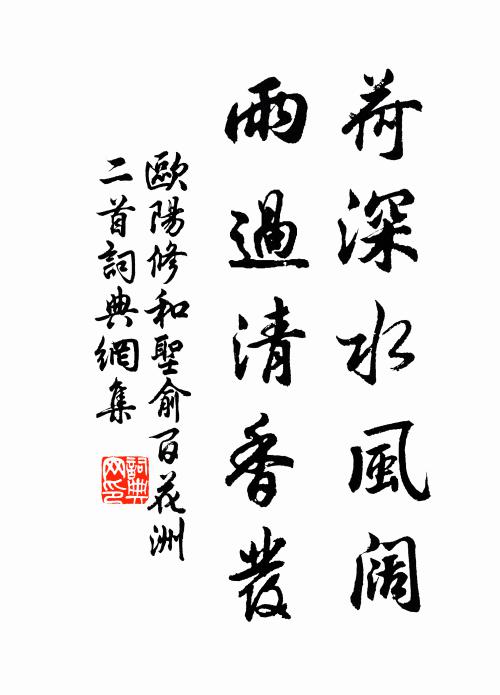 荷深水風阔
雨過清香發
歐陽修和聖俞百花洲
二首詞典網集
詞典
网印